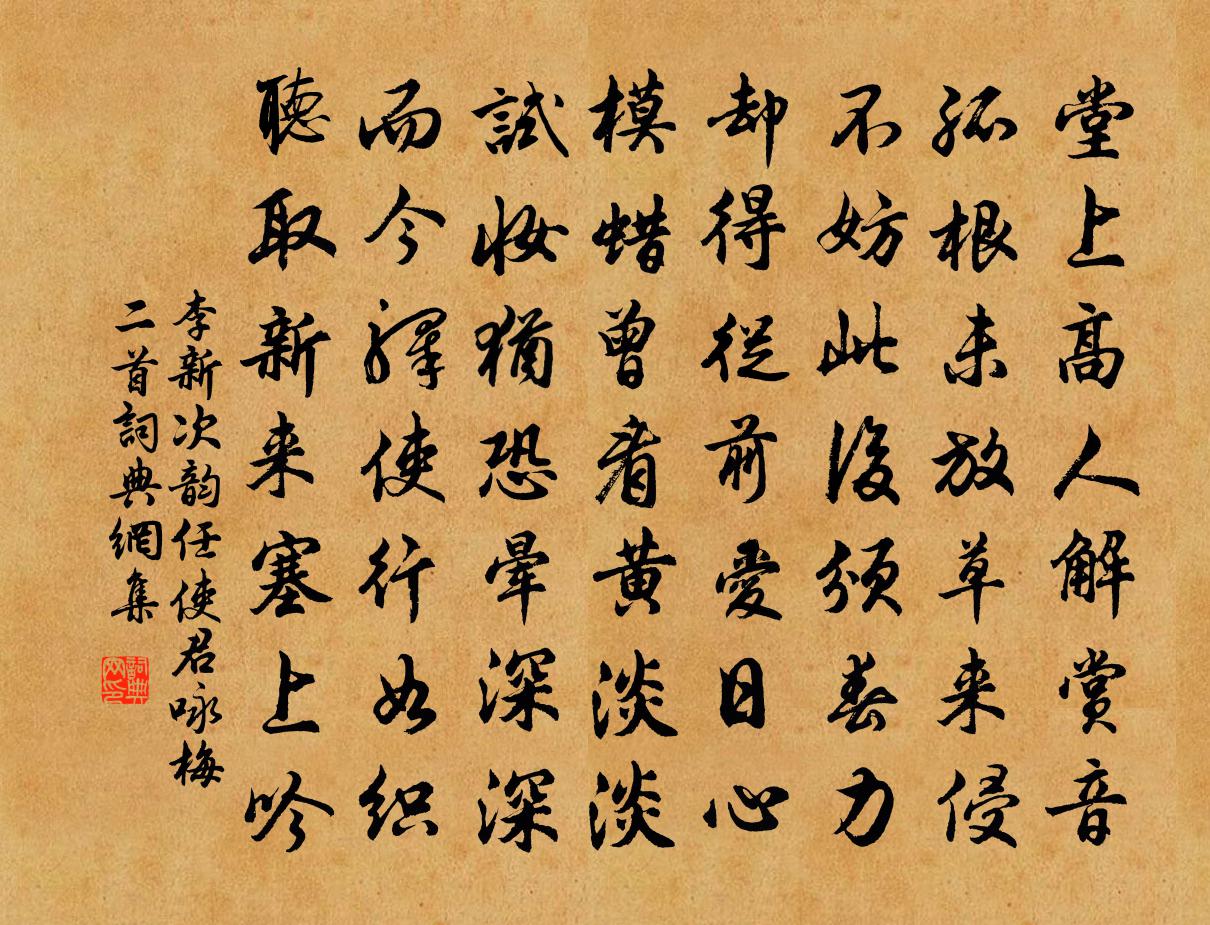 堂上高人解賞音
孤根未放草来侵
不妨此後須春力
却得從前愛日心
模蜡曾看黄淡淡
試妝猶恐暈深深
而今驛使行如織
聽取新来塞上吟
李新次韵任使君咏梅
二首詞典網集
詞典网印